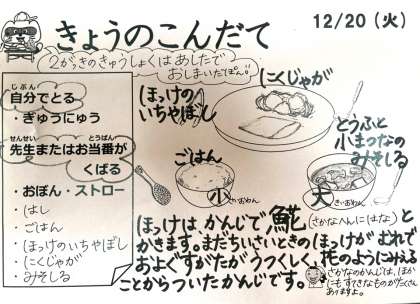 きょうのこんだて
12/20（火）
2がっきのきゅうしょくはあしたで
おしまいだぽん!!
じぶん
自分でとる
・ぎゅうにゅう
せんせい とうばん
先生またはお当番が
くばる
・おぼん・ストロー
・はし
・ごはん
・ほっけのいちゃぼし
・にくじゃが
・みそしる
ほっけの
いちゃぼし
にくじゃが
とうふと
小まつなの
みそしる
ごはん
小
大
ほっけは、かんじで𩸽（さかなへんにはな）と
かきます。まだちいさいときのほっけが むれで
およぐすがたが うつくしく、花のようにみえる
ことからついたかんじです。
さかなのかんじは、ほか
にもすてきなものがたくさん
ありますよ。